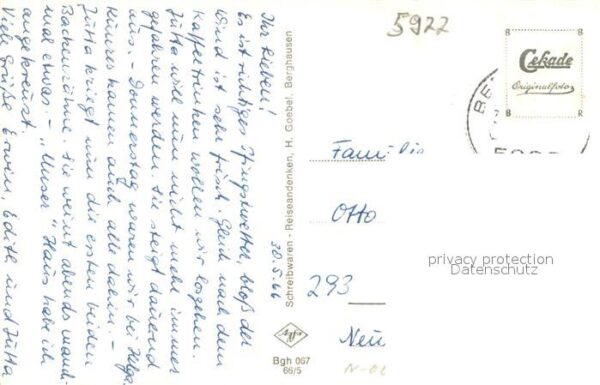 30.5.66
Ihr Lieben!
Es ist richtiges Pfingstwetter, bloß der
Wind ist sehr frisch. Gleich nach dem
Kaffeetrinken wollen wir losgehen.
Jutta will nun nicht mehr immer
gefahren werden. Sie steigt dauernd
aus. - Donnerstag waren wir bei Helga.
kamen auch alle dahin -
Jutta kriegt nun die ersten beiden
Backenzähne. Sie weint abends manch-
mal etwas. - "Unser" Haus habe ich
angekreuzt.
Viele Grüße Erwin, Edith und Jutta
Schreibwaren - Reiseandenken, H. Goebel, Berghausen
Agfa
Bgh 067
66/5
5922
Cekade
Originalfoto
Fam
Otto
293
Neu
privacy protection
Datenschutz